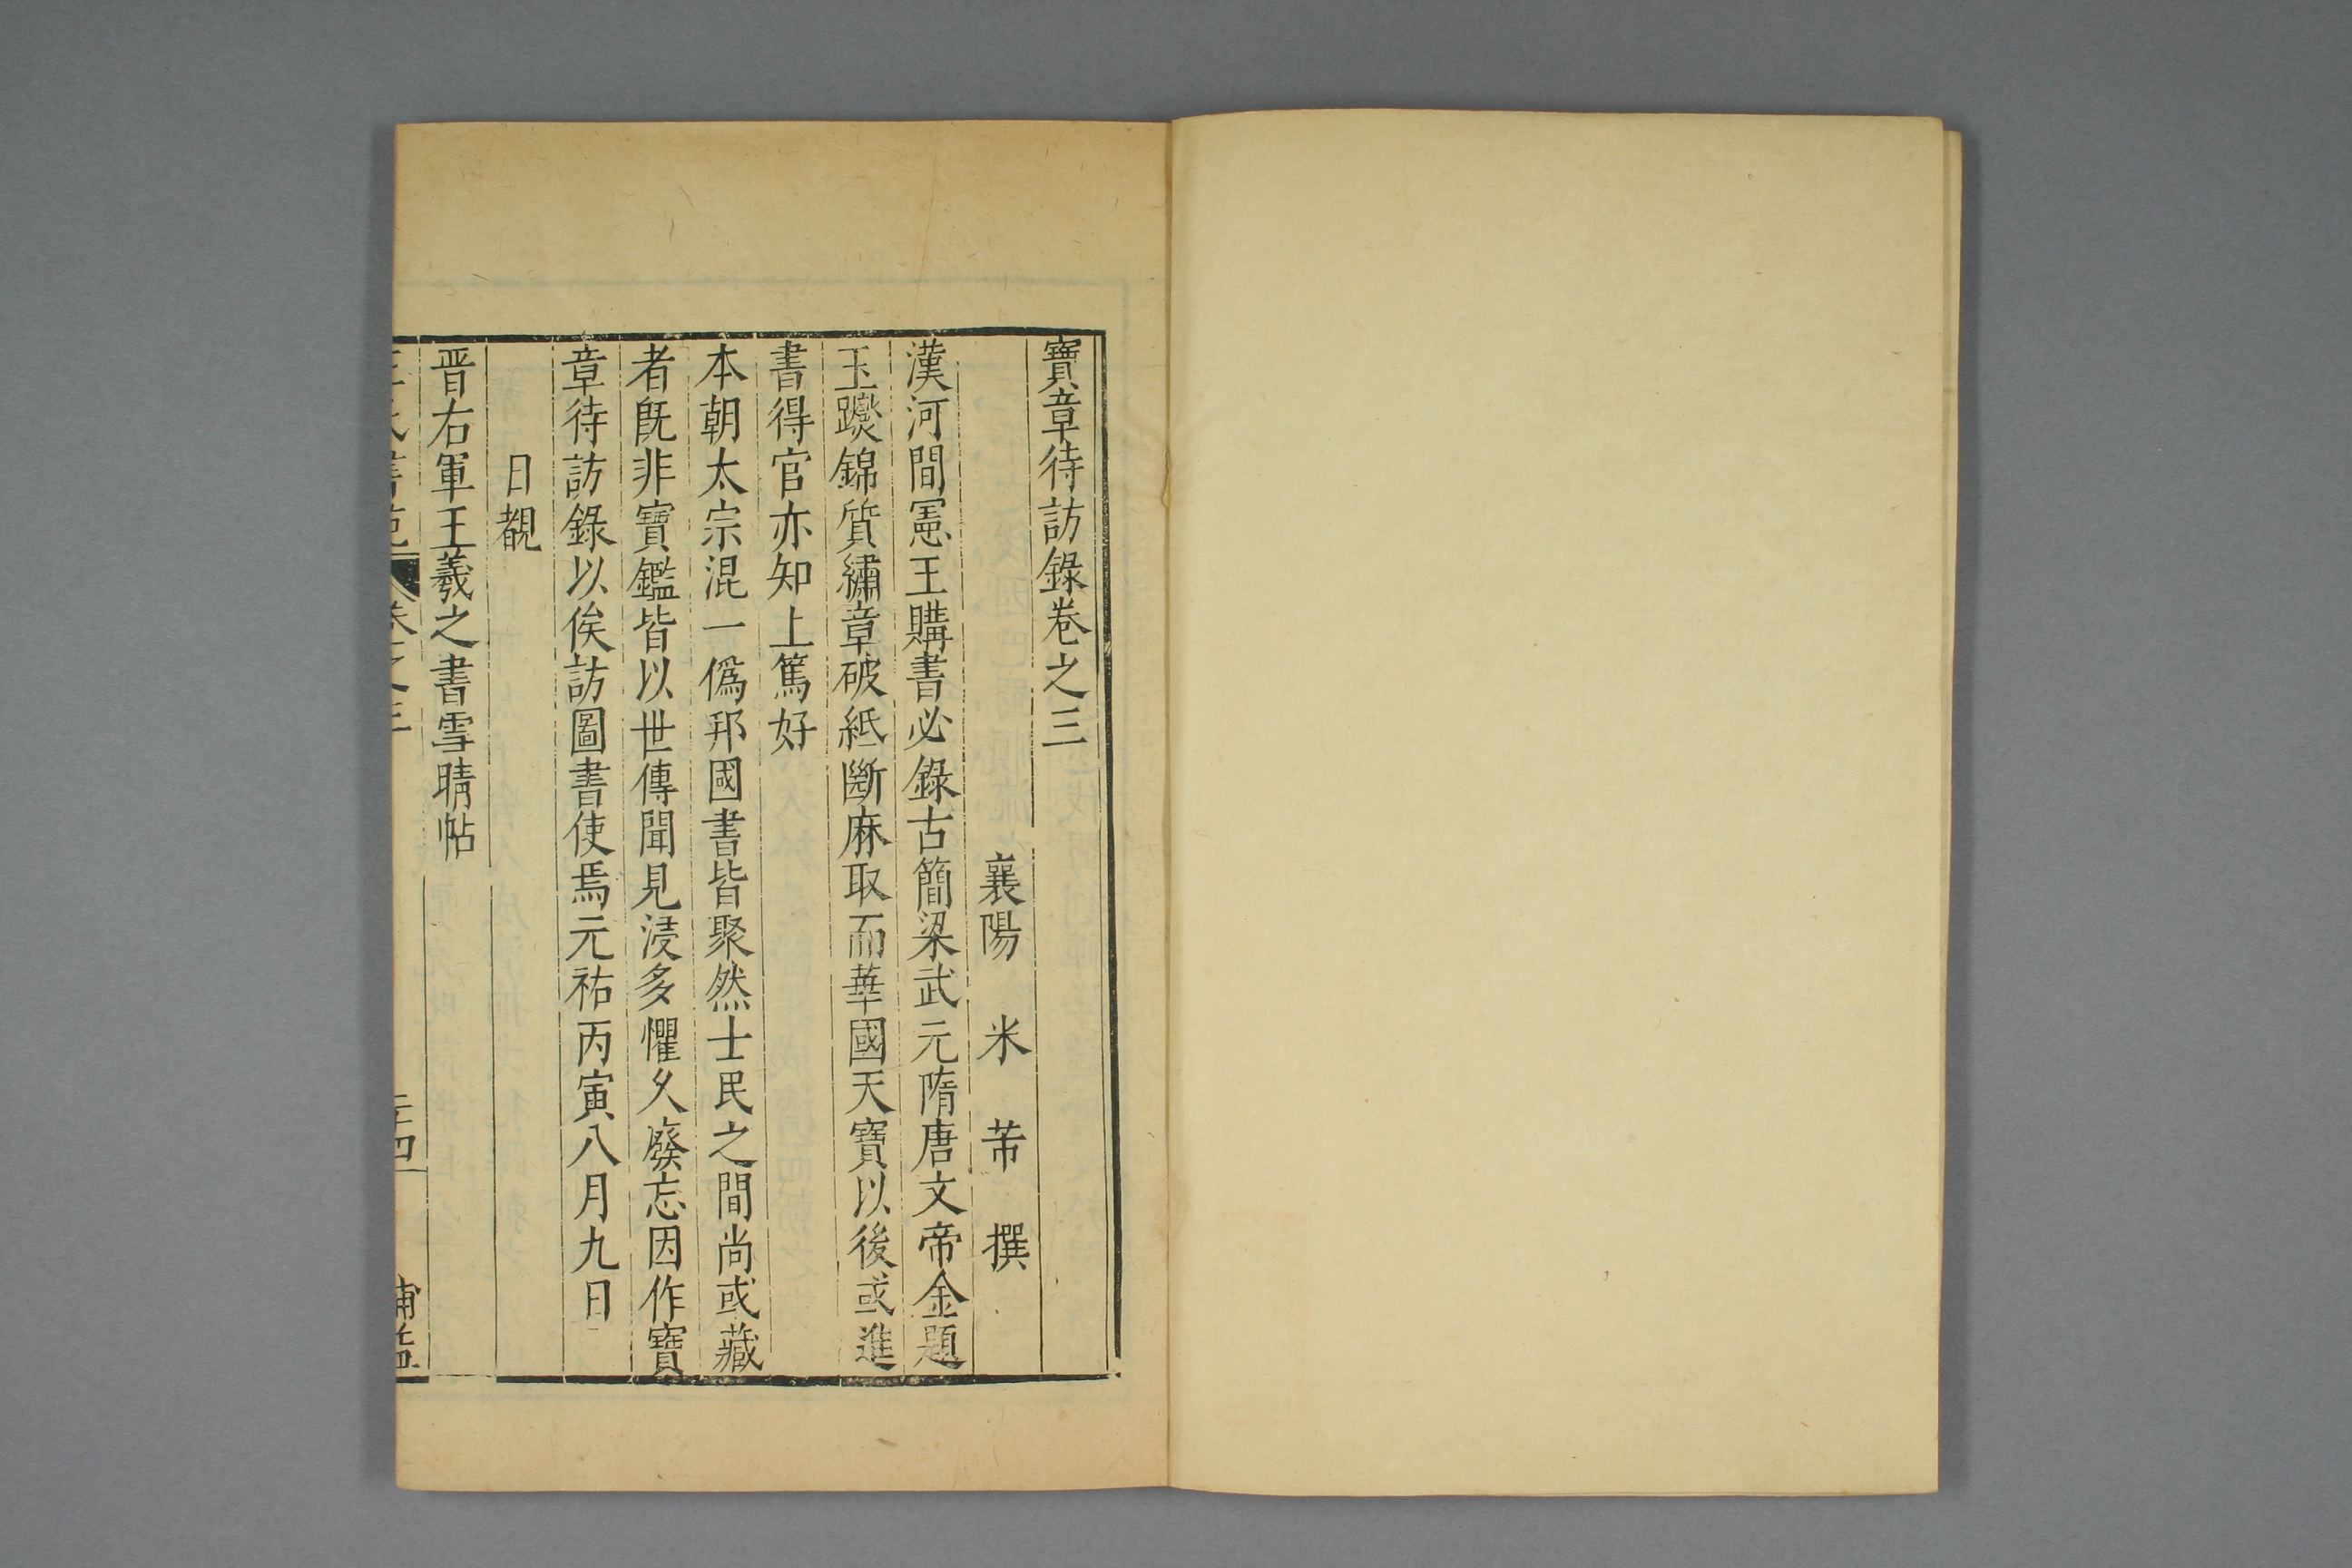 寶章待訪錄卷之三
襄陽 米 芾 撰
漢河間憲王購書必錄古簡梁武元隋唐文帝金題
玉躞錦質繡章破紙斷麻取而華國天寶以後或進
書得官亦知上篤好
本朝太宗混一僞邦國書皆聚然士民之間尚或藏
者旣非寶鑑皆以世傳聞見浸多懼久廢忘因作寶
章待訪錄以俟訪圖書使焉元祐丙寅八月九日
日覩
晋右軍王羲之書雪晴帖
卷之三